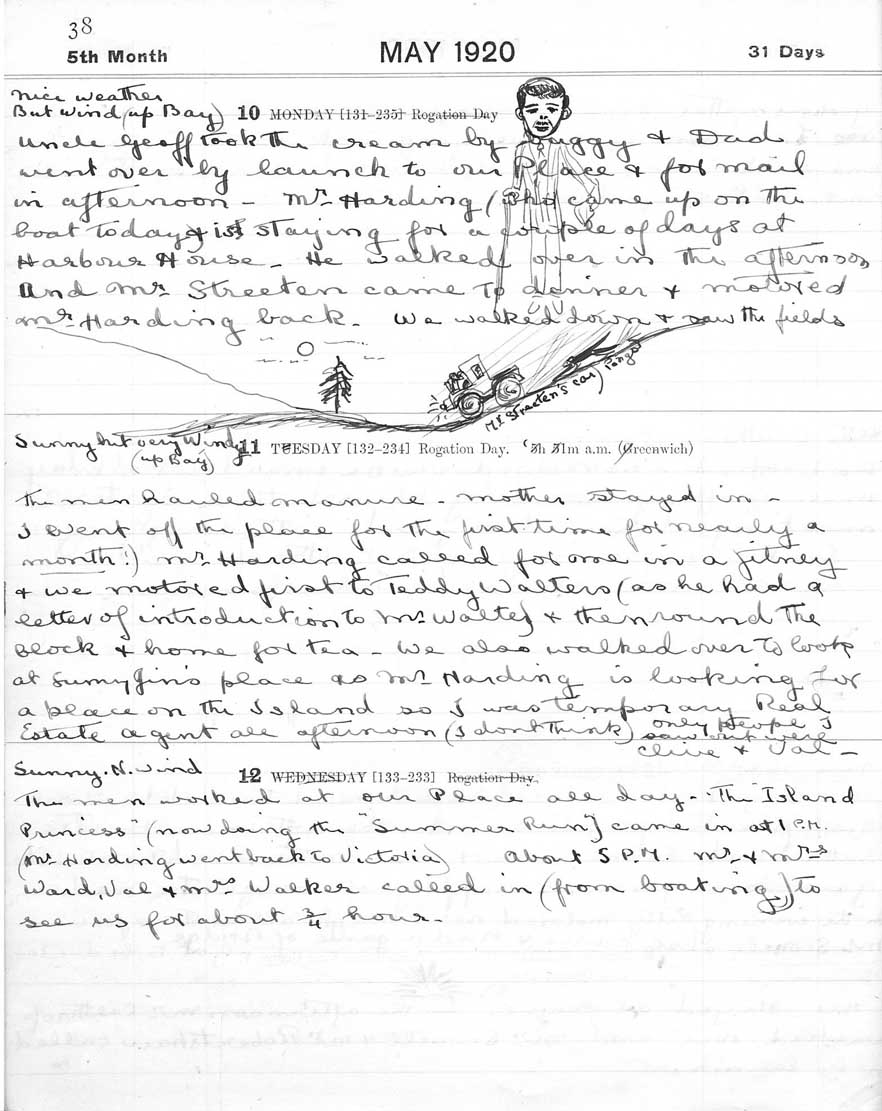 38
5th Month MAY 1920 31 Days
nice weather
But Wind (up Bay) 10 MONDAY [131-235] Rogation Day
Uncle Geoff took the cream by Buggy & Dad
went over by launch to our Place & for mail
in afternoon - Mr Harding (who came up on the
boat today & is staying for a couple of days at
Harbour House - He walked over in the afternoon
and Mr Streeten came to dinner & motored
Mr Harding back. We walked down & saw the fields
Mr Streeten's car
Sunny but very Windy
(up Bay) 11 TUESDAY [132-234] Rogation Day. 51m a.m. (Greenwich)
The men hauled manure - mother stayed in -
I went off the place for the first time for nearly a
month!) Mr Harding called for me in a jitney
& we motored first to Teddy Walters (as he had a
letter of introduction to Mr Walter) & then round the
Block & home for tea - We also walked over to look
at place as Mr Harding is looking for
a place on the Island so I was temporary Real
Estate agent all afternoon (I dont think) only people I
saw out were
Clive & Val -
Sunny. N. wind
12 WEDNESDAY [133-233] Rogation Day.
The men worked at our Place all day - The "Island
Princess" (now doing the "Summer Run") came in at 1 P.M.
(Mr Harding went back to Victoria) About 5 P.M. Mr & Mrs
Ward, Val & Mrs Walker called in (from boating) to
see us for about 3/4 hour.